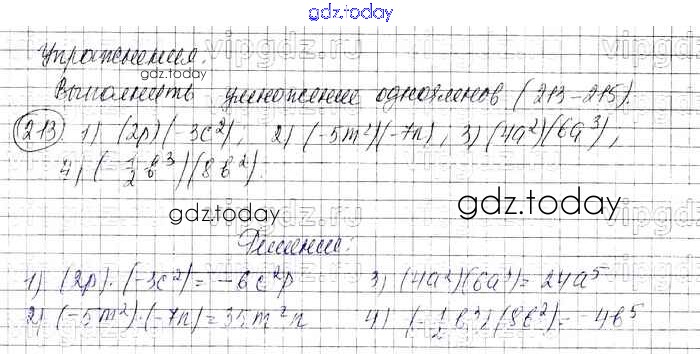 gdz.today
Упражнения.
gdz.today
Выполнить умножение одночленов (213-215).
213 1) (2p)(-3c²), 2) (-5m²)(-7n), 3) (4a²)(6a³),
4) (-1/2 b³)(8b²).
gdz.today
gdz.today
Решение:
1) (2p)·(-3c²)=-6c²p 3) (4a²)(6a³)=24a⁵
2) (-5m²)·(-7n)=35m²n 4) (-1/2 b³)(8b²)=-4b⁵